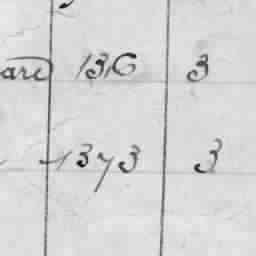 are 1316 3
1373 3